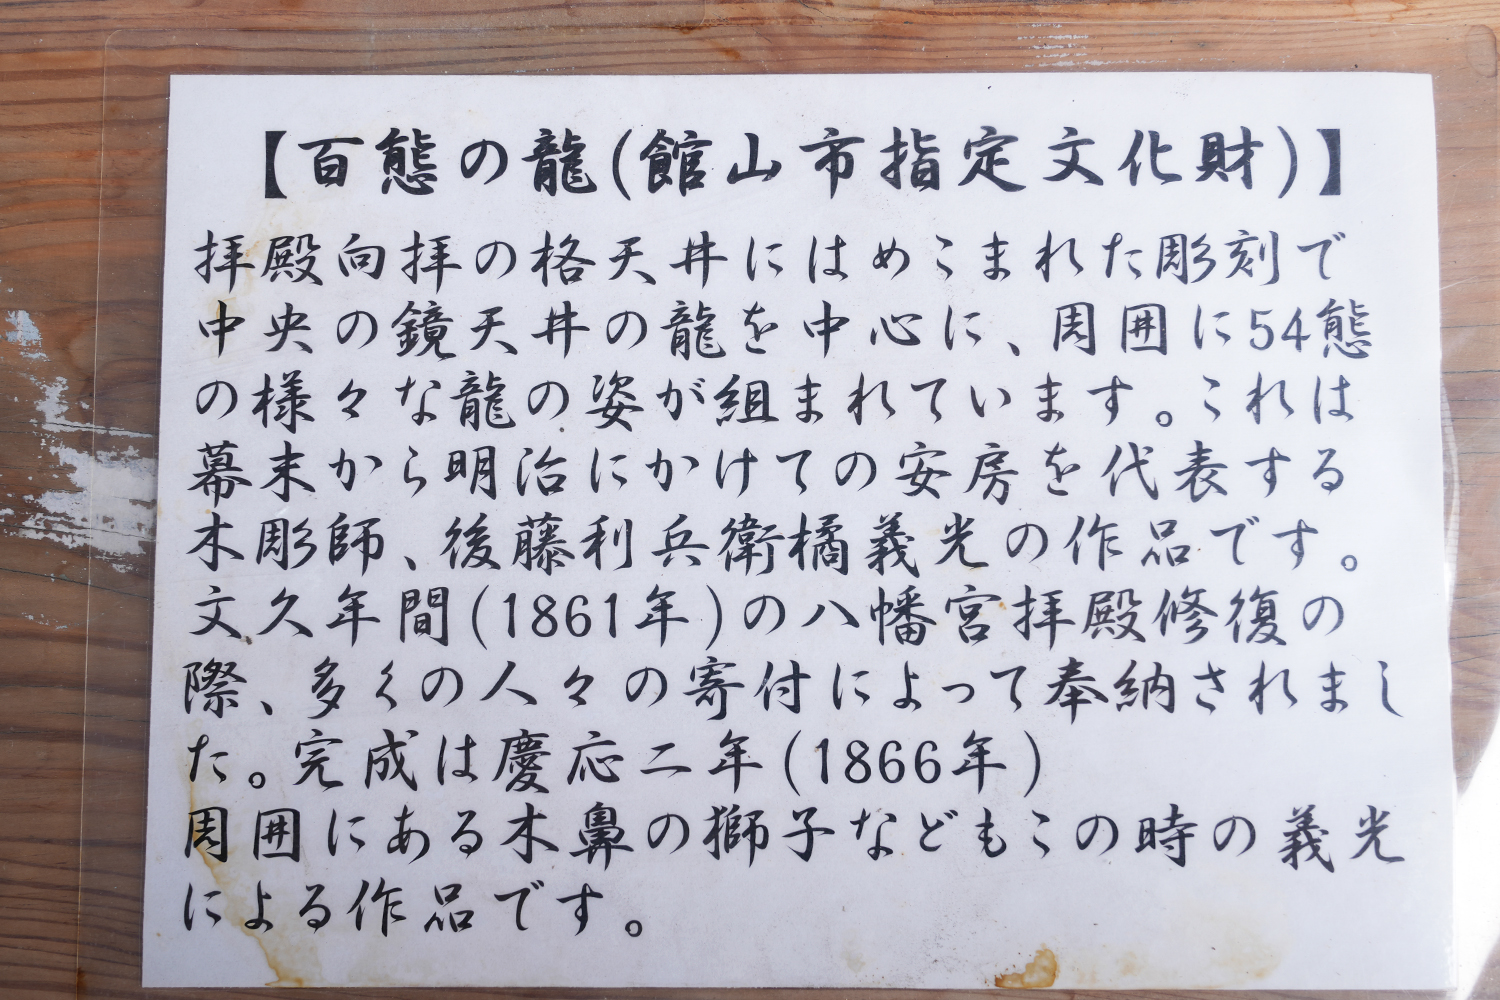 【百態の龍(館山市指定文化財)】
拝殿向拝の格天井にはめこまれた彫刻で
中央の鏡天井の龍を中心に、周囲に54態
の様々な龍の姿が組まれています。これは
幕末から明治にかけての安房を代表する
木彫師、後藤利兵衛橘義光の作品です。
文久年間(1861年)の八幡宮拝殿修復の
際、多くの人々の寄付によって奉納されまし
た。完成は慶応二年(1866年)
周囲にある木鼻の獅子などもこの時の義光
による作品です。